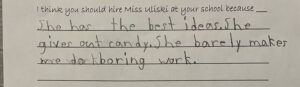 I think you should hire Miss Uliski at your school because __
She has the best ideas. She
gives out candy. She barely makes
me do boring work.